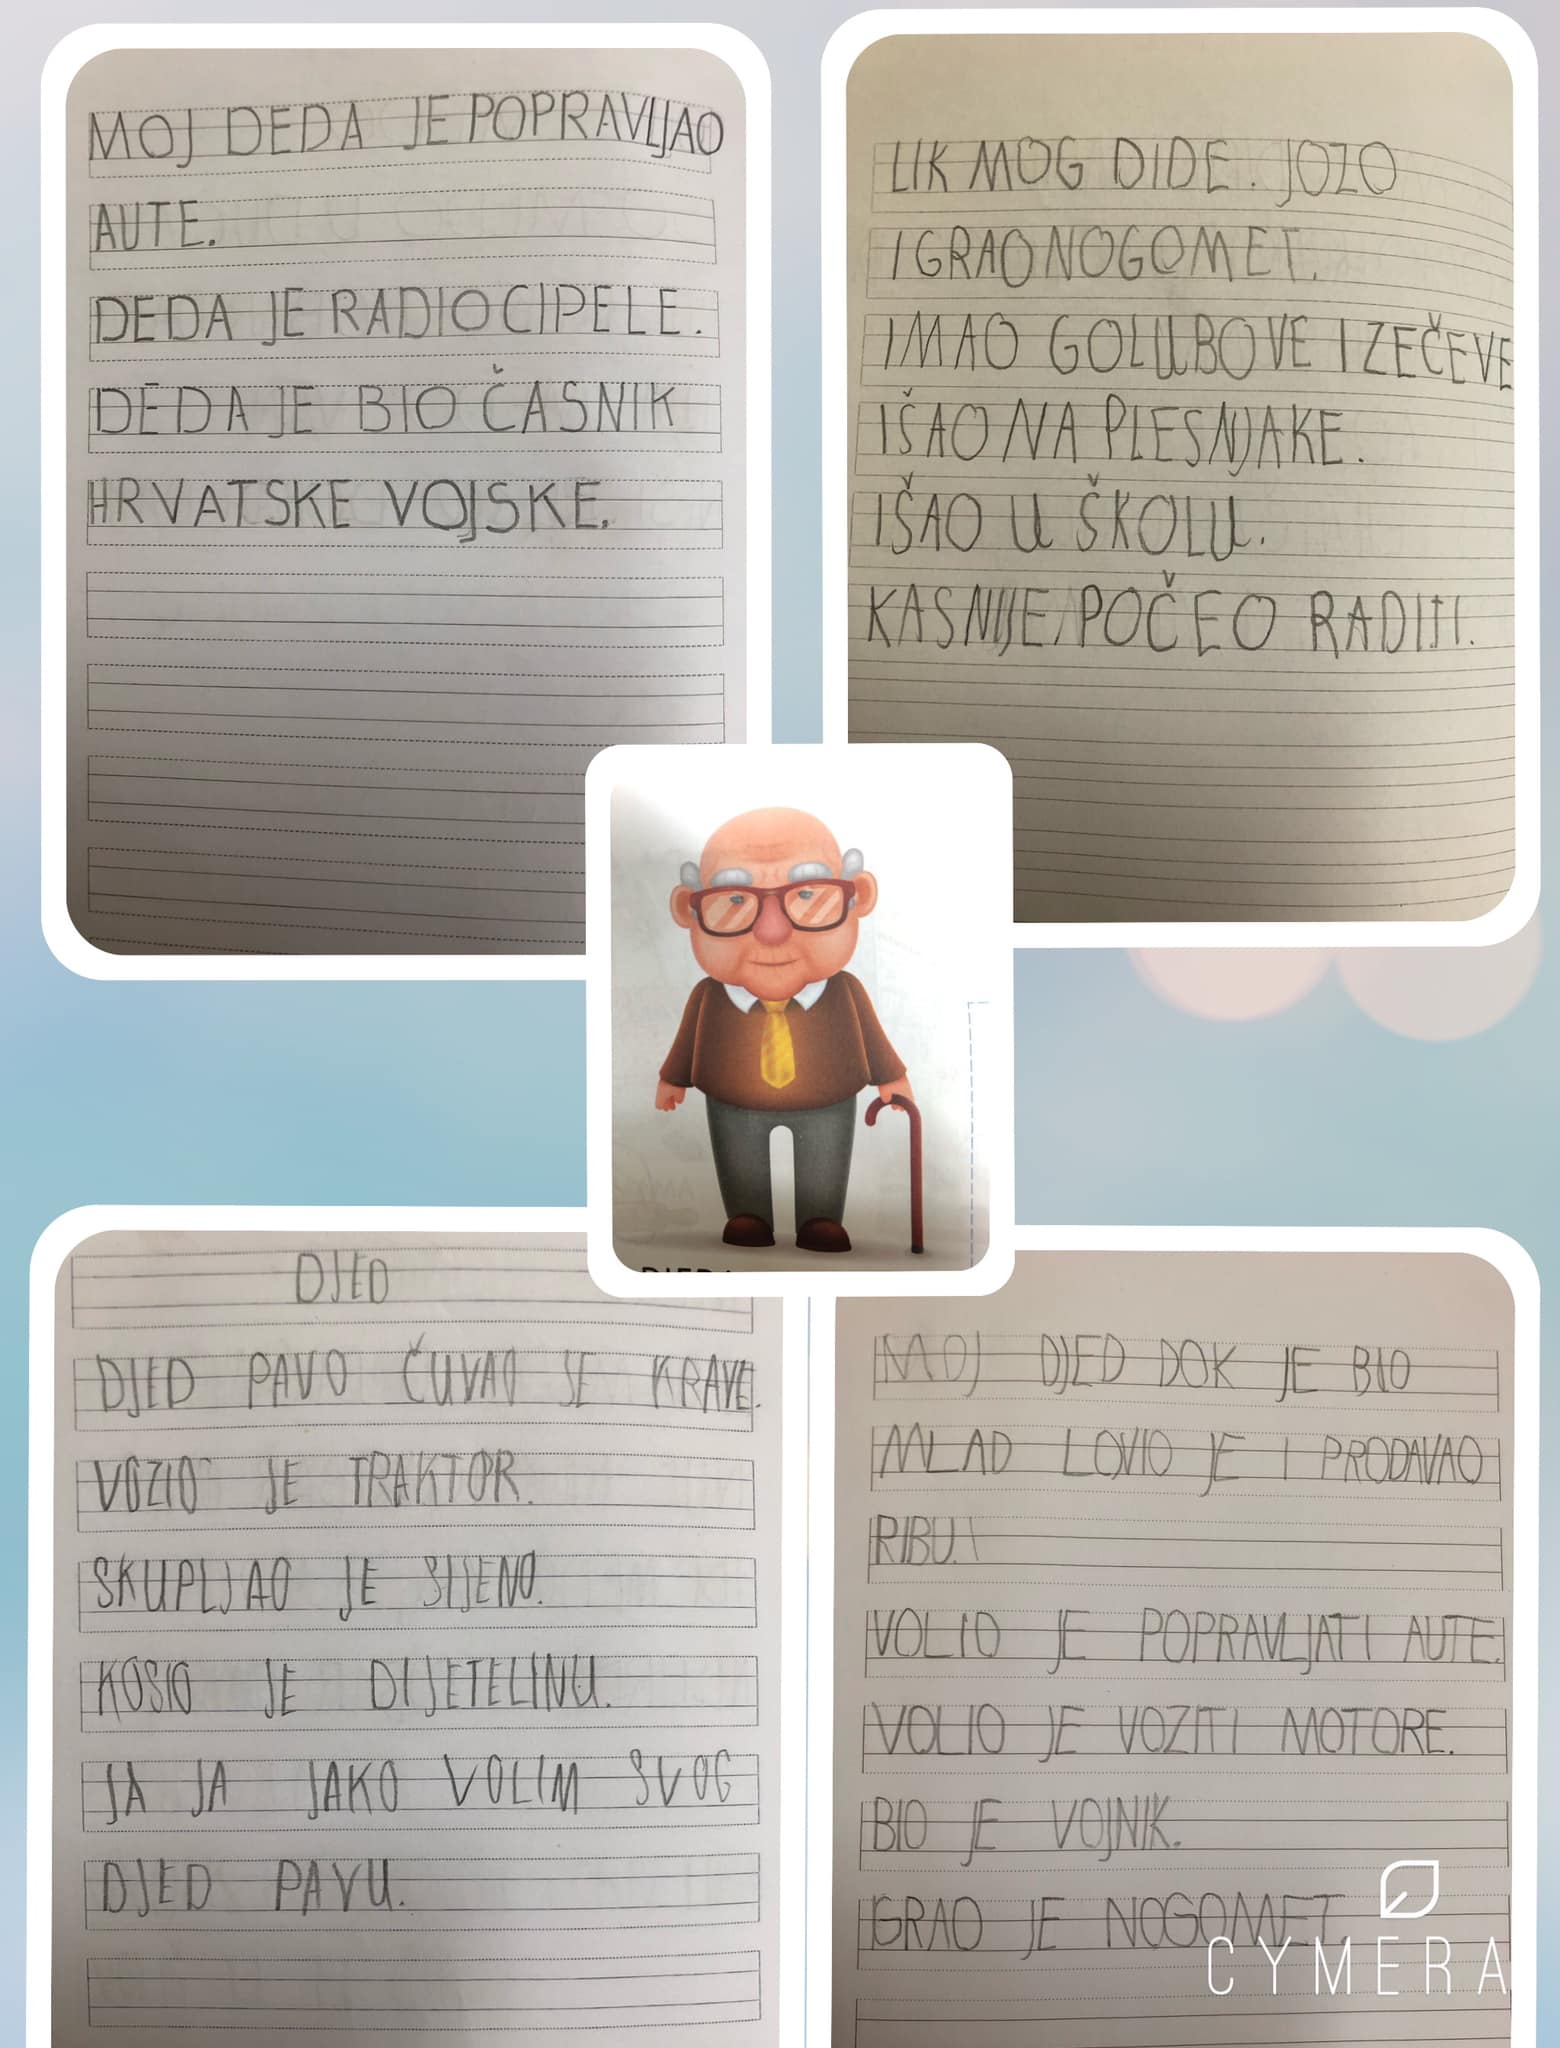 MOJ DEDA JE POPRAVLJAO
AUTE.
DEDA JE RADIO CIPELE.
DEDA JE BIO ČASNIK
HRVATSKE VOJSKE.
LIK MOG DIDE. JOZO
IGRAO NOGOMET.
IMAO GOLUBOVE I ZEČEVE
IŠAO NA PLESNJAKE.
IŠAO U ŠKOLU.
KASNIJE POČEO RADITI.
DJED
DJED PAVO ČUVAO JE KRAVE.
VOZIO JE TRAKTOR.
SKUPLJAO JE SIJENO.
KOSIO JE DIJETELINU.
JA JA JAKO VOLIM SVOG
DJED PAVU.
MOJ DJED DOK JE BIO
MLAD LOVIO JE I PRODAVAO
RIBU.
VOLIO JE POPRAVLJATI AUTE.
VOLIO JE VOZITI MOTORE.
BIO JE VOJNIK.
IGRAO JE NOGOMET.
CYMERA